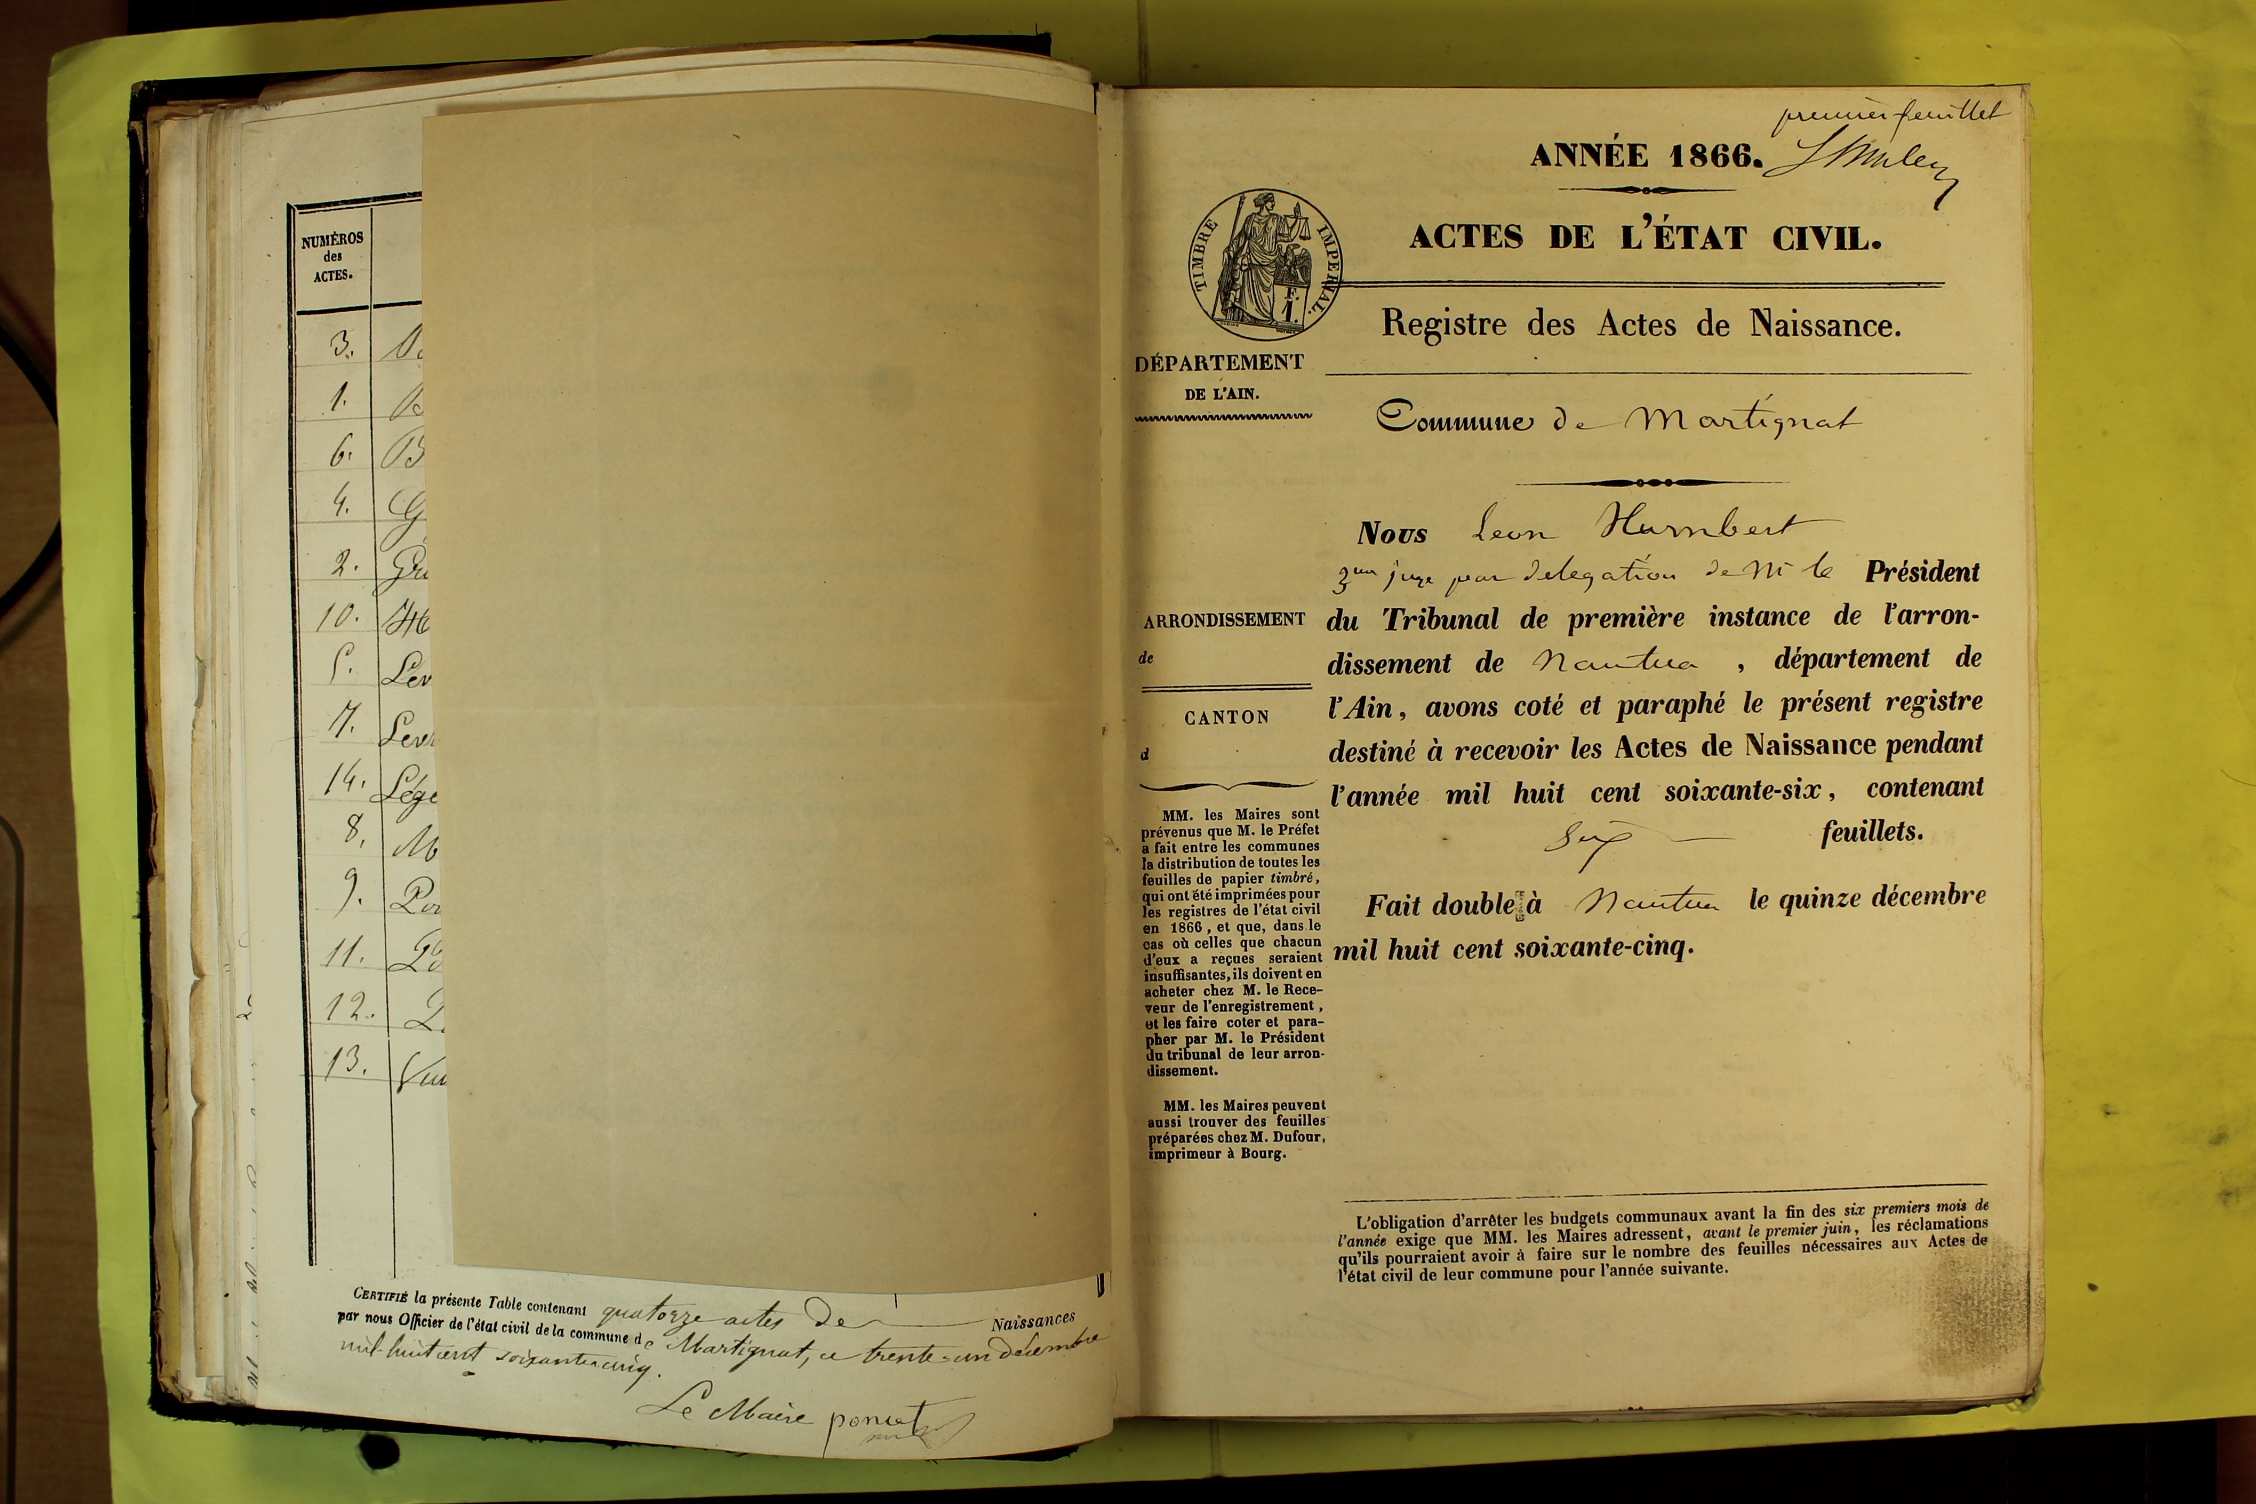 NUMÉROS
des
ACTES.
3.
1.
6. B
4. G
2. Gr
10.
5. Lev
7. Lev
14. Lége
8. M
9.
11.
12.
13.
CERTIFIÉ la présente Table contenant quatorze actes de Naissances
par nous Officier de l'état civil de la commune de Martignat, ce trente-un décembre
mil-huit cent soixante cinq.
Le Maire poncet
premier feuillet
ANNÉE 1866.
ACTES DE L'ÉTAT CIVIL.
TIMBRE IMPERIAL.
F.
1.
Registre des Actes de Naissance.
DÉPARTEMENT
DE L'AIN.
Commune de Martignat
Nous Leon Humbert
juge par delegation de Mr le Président
du Tribunal de première instance de l'arron-
dissement de Nantua, département de
l'Ain, avons coté et paraphé le présent registre
destiné à recevoir les Actes de Naissance pendant
l'année mil huit cent soixante-six, contenant
Six feuillets.
Fait double à Nantua le quinze décembre
mil huit cent soixante-cinq.
ARRONDISSEMENT
de
CANTON
d
MM. les Maires sont
prévenus que M. le Préfet
a fait entre les communes
la distribution de toutes les
feuilles de papier timbré,
qui ont été imprimées pour
les registres de l'état civil
en 1866, et que, dans le
cas où celles que chacun
d'eux a reçues seraient
insuffisantes, ils doivent en
acheter chez M. le Rece-
veur de l'enregistrement,
et les faire coter et para-
pher par M. le Président
du tribunal de leur arron-
dissement.
MM. les Maires peuvent
aussi trouver des feuilles
préparées chez M. Dufour,
imprimeur à Bourg.
L'obligation d'arrêter les budgets communaux avant la fin des six premiers mois de
l'année exige que MM. les Maires adressent, avant le premier juin, les réclamations
qu'ils pourraient avoir à faire sur le nombre des feuilles nécessaires aux Actes de
l'état civil de leur commune pour l'année suivante.